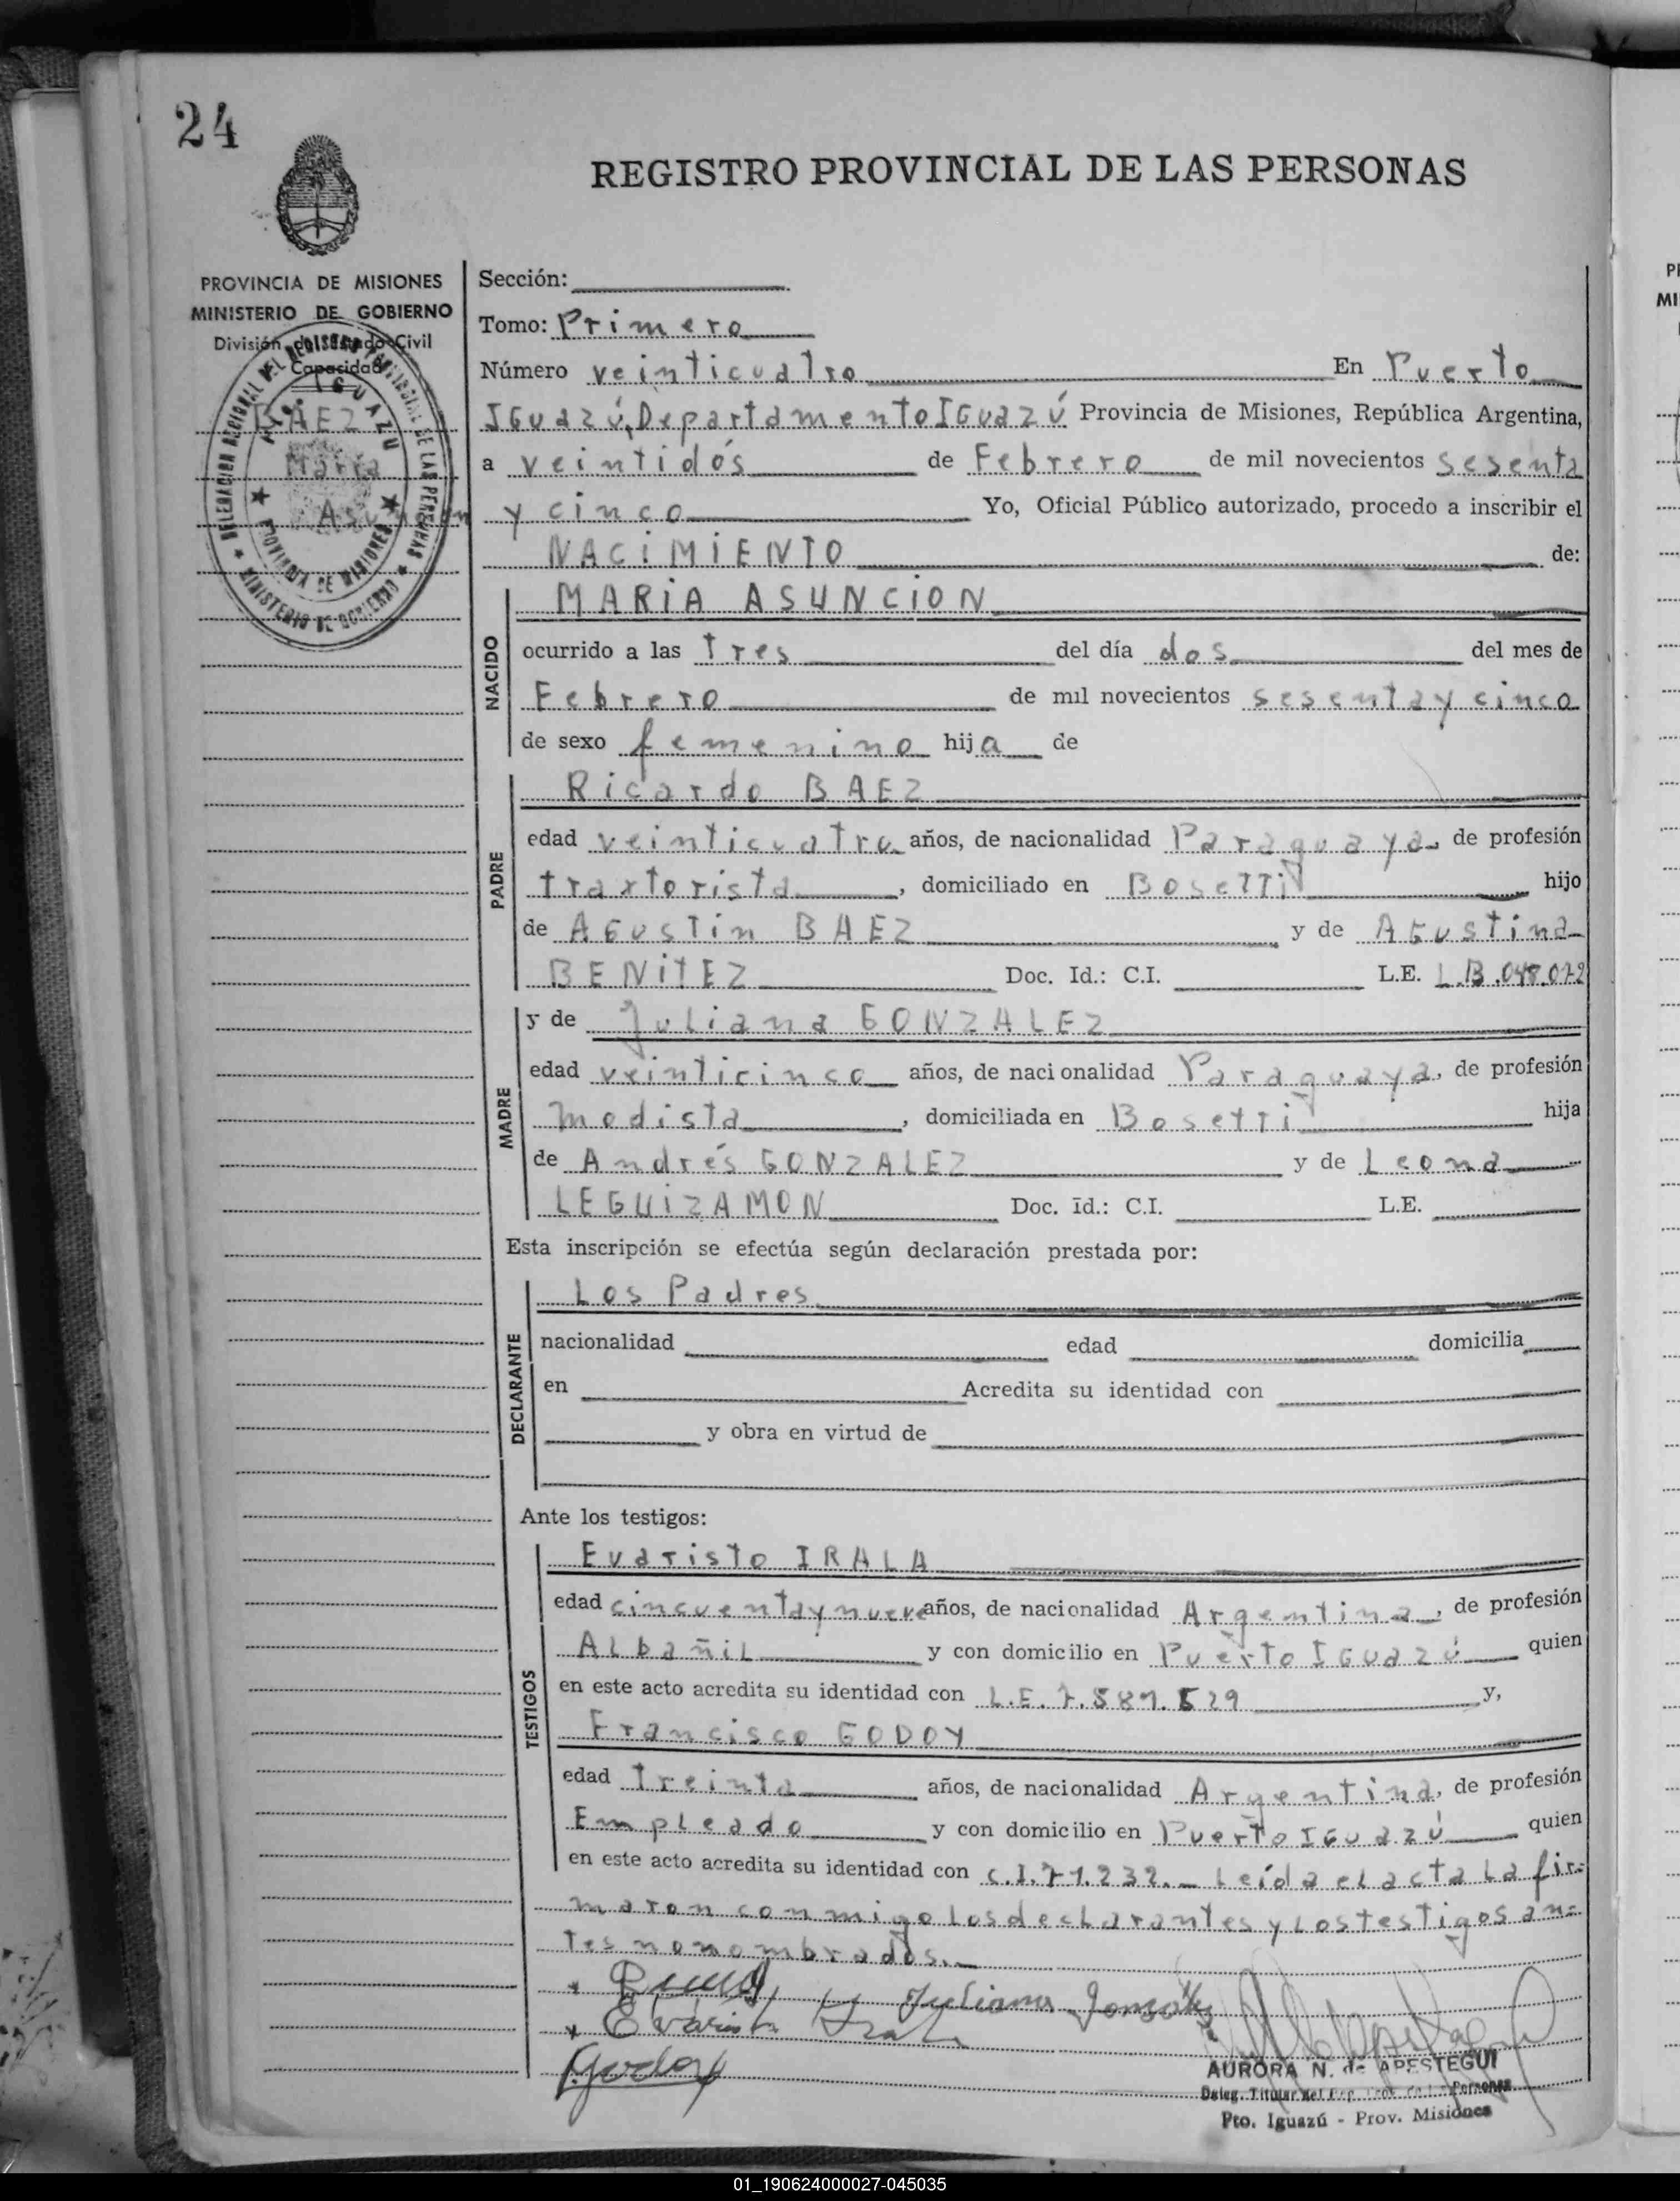 24
REGISTRO PROVINCIAL DE LAS PERSONAS
PROVINCIA DE MISIONES
MINISTERIO DE GOBIERNO
División de Estado Civil
Capacidad
BAEZ
Maria
Asunción
DELEGACION REGIONAL DEL REGISTRO PROVINCIAL DE LAS PERSONAS
PTO. IGUAZU
PROVINCIA DE MISIONES
MINISTERIO DE GOBIERNO
Sección:
Tomo: Primero
Número veinticuatro En Puerto
IGuazú, Departamento IGuazú Provincia de Misiones, República Argentina,
a veintidós de Febrero de mil novecientos sesenta
y cinco Yo, Oficial Público autorizado, procedo a inscribir el
NACIMIENTO de:
NACIDO
MARIA ASUNCION
ocurrido a las Tres del día dos del mes de
Febrero de mil novecientos sesenta y cinco
de sexo femenino hija de
PADRE
Ricardo BAEZ
edad veinticuatro años, de nacionalidad Paraguaya, de profesión
traxtorista, domiciliado en Bosetti hijo
de AGustín BAEZ y de AGustina
BENITEZ Doc. Id.: C.I. L.E. L.B.048.072
MADRE
y de Juliana GONZALEZ
edad veinticinco años, de nacionalidad Paraguaya, de profesión
modista, domiciliada en Bosetti hija
de Andrés GONZALEZ y de Leona
LEGUIZAMON Doc. Id.: C.I. L.E.
Esta inscripción se efectúa según declaración prestada por:
DECLARANTE
Los Padres
nacionalidad edad domicilia
en Acredita su identidad con
y obra en virtud de
Ante los testigos:
TESTIGOS
Evaristo IRALA
edad cincuenta y nueve años, de nacionalidad Argentina, de profesión
Albañil y con domicilio en Puerto IGuazú quien
en este acto acredita su identidad con L.E. 7.587.529 y,
Francisco GODOY
edad Treinta años, de nacionalidad Argentina, de profesión
Empleado y con domicilio en Puerto IGuazú quien
en este acto acredita su identidad con C.I.71.232.- Leída el acta la fir-
maron conmigo los declarantes y los testigos an-
tes nonombrados.-
Juliana Gonzalez
Evaristo Irala
Godoy
AURORA N. de APESTEGUI
Deleg. Titular del Reg. Prov. de las Personas
Pto. Iguazú - Prov. Misiones
01_190624000027-045035